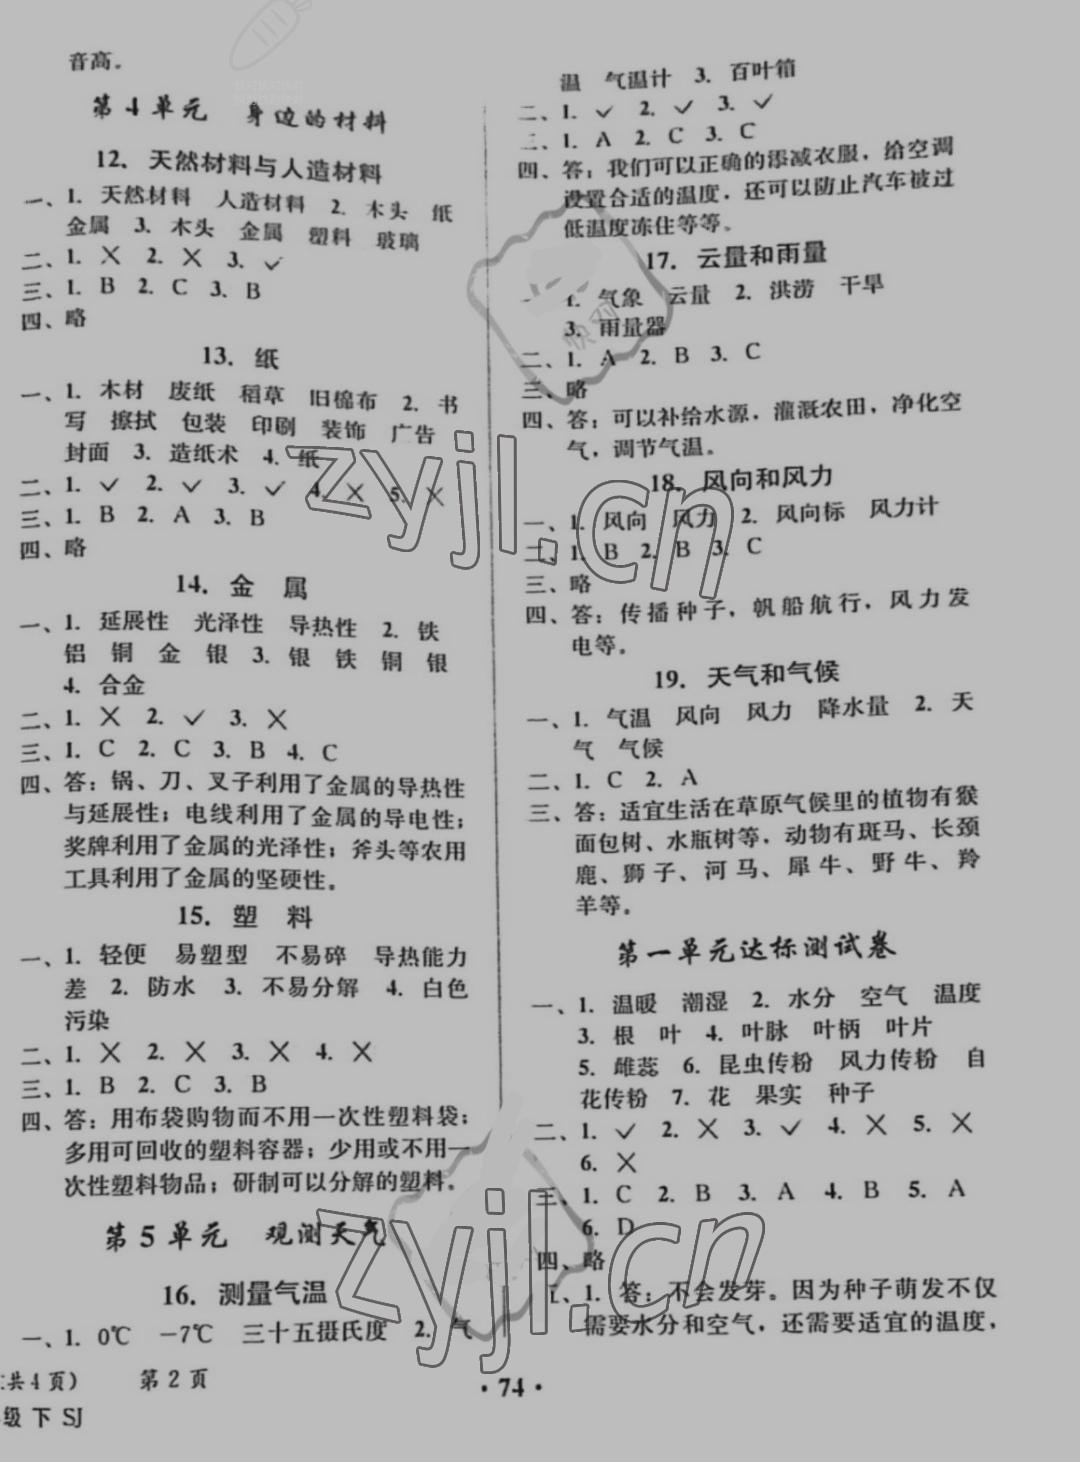 音高。
第4单元 身边的材料
12. 天然材料与人造材料
一、1. 天然材料 人造材料 2. 木头 纸
金属 3. 木头 金属 塑料 玻璃
二、1. ✕ 2. ✕ 3. ✓
三、1. B 2. C 3. B
四、略
13. 纸
一、1. 木材 废纸 稻草 旧棉布 2. 书
写 擦拭 包装 印刷 装饰 广告
封面 3. 造纸术 4. 纸
二、1. ✓ 2. ✓ 3. ✓ 4. ✕ 5. ✕
三、1. B 2. A 3. B
四、略
14. 金 属
一、1. 延展性 光泽性 导热性 2. 铁
铝 铜 金 银 3. 银 铁 铜 银
4. 合金
二、1. ✕ 2. ✓ 3. ✕
三、1. C 2. C 3. B 4. C
四、答：锅、刀、叉子利用了金属的导热性
与延展性；电线利用了金属的导电性；
奖牌利用了金属的光泽性；斧头等农用
工具利用了金属的坚硬性。
15. 塑 料
一、1. 轻便 易塑型 不易碎 导热能力
差 2. 防水 3. 不易分解 4. 白色
污染
二、1. ✕ 2. ✕ 3. ✕ 4. ✕
三、1. B 2. C 3. B
四、答：用布袋购物而不用一次性塑料袋；
多用可回收的塑料容器；少用或不用一
次性塑料物品；研制可以分解的塑料。
第5单元 观测天气
16. 测量气温
一、1. 0℃ －7℃ 三十五摄氏度 2. 气
温 气温计 3. 百叶箱
二、1. ✓ 2. ✓ 3. ✓
三、1. A 2. C 3. C
四、答：我们可以正确的添减衣服，给空调
设置合适的温度，还可以防止汽车被过
低温度冻住等等。
17. 云量和雨量
1. 气象 云量 2. 洪涝 干旱
3. 雨量器
二、1. A 2. B 3. C
三、略
四、答：可以补给水源，灌溉农田，净化空
气，调节气温。
18. 风向和风力
一、1. 风向 风力 2. 风向标 风力计
二、1. B 2. B 3. C
三、略
四、答：传播种子，帆船航行，风力发
电等。
19. 天气和气候
一、1. 气温 风向 风力 降水量 2. 天
气 气候
二、1. C 2. A
三、答：适宜生活在草原气候里的植物有猴
面包树、水瓶树等，动物有斑马、长颈
鹿、狮子、河马、犀牛、野牛、羚
羊等。
第一单元达标测试卷
一、1. 温暖 潮湿 2. 水分 空气 温度
3. 根 叶 4. 叶脉 叶柄 叶片
5. 雌蕊 6. 昆虫传粉 风力传粉 自
花传粉 7. 花 果实 种子
二、1. ✓ 2. ✕ 3. ✓ 4. ✕ 5. ✕
6. ✕
三、1. C 2. B 3. A 4. B 5. A
6. D
四、略
五、1. 答：不会发芽。因为种子萌发不仅
需要水分和空气，还需要适宜的温度，
共4页） 第2页
·74·
级 下 SJ
zyjl.cn
zyjl.cn